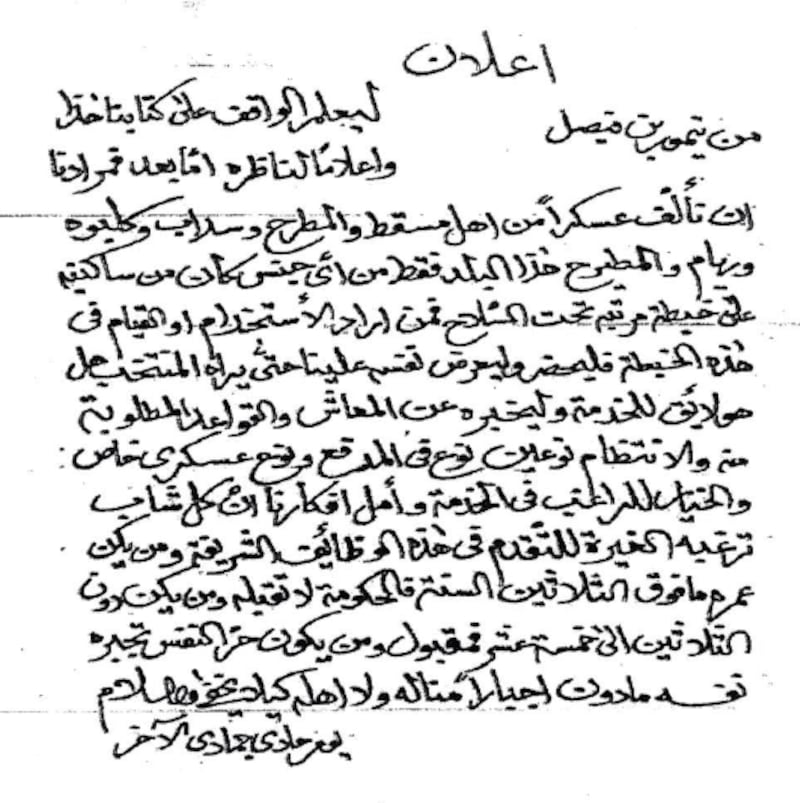 اعلان
من تيمور بن فيصل
ليعلم الواقف على كتابنا هذا
واعلامًا لناظره امّا بعد فمرادنا
ان تألّف عسكراً من اهل مسقط والمطرح وسداب وكلبوه
وريام والمطيرح هذا البلد فقط من ائ جنس كان من ساكنيه
على خيطة مرتبه تحت السّلاح فمن اراد الأستخدام او القيام فى
هذه الخيطة فليحضر وليعرض نفسه علينا حتّى يراه المنتخب هل
هو لائق للخدمة وليخبره عن المعاش والقواعد المطلوبة
منه والانتظام نوعين نوع فى المدفع ونوع عسكرى خاص :
والخيار للراغب فى الخدمة وأمل افكارنا انّ كل شاب
ترغبه الغيرة للتّقدم فى هذه الوظائف الشريفة ومن يكن
عمره مافوق الثلاثين السنة فالحكومة لا تقبله ومن يكن دون
الثلاثين الى خمسة عشر فمقبول ومن يكون حرّ النفس تجبره
نفسه مادون اجباراً مثاله ولا اهله كيلا يخفى والسلام
يوم حادى جمادى الآخر